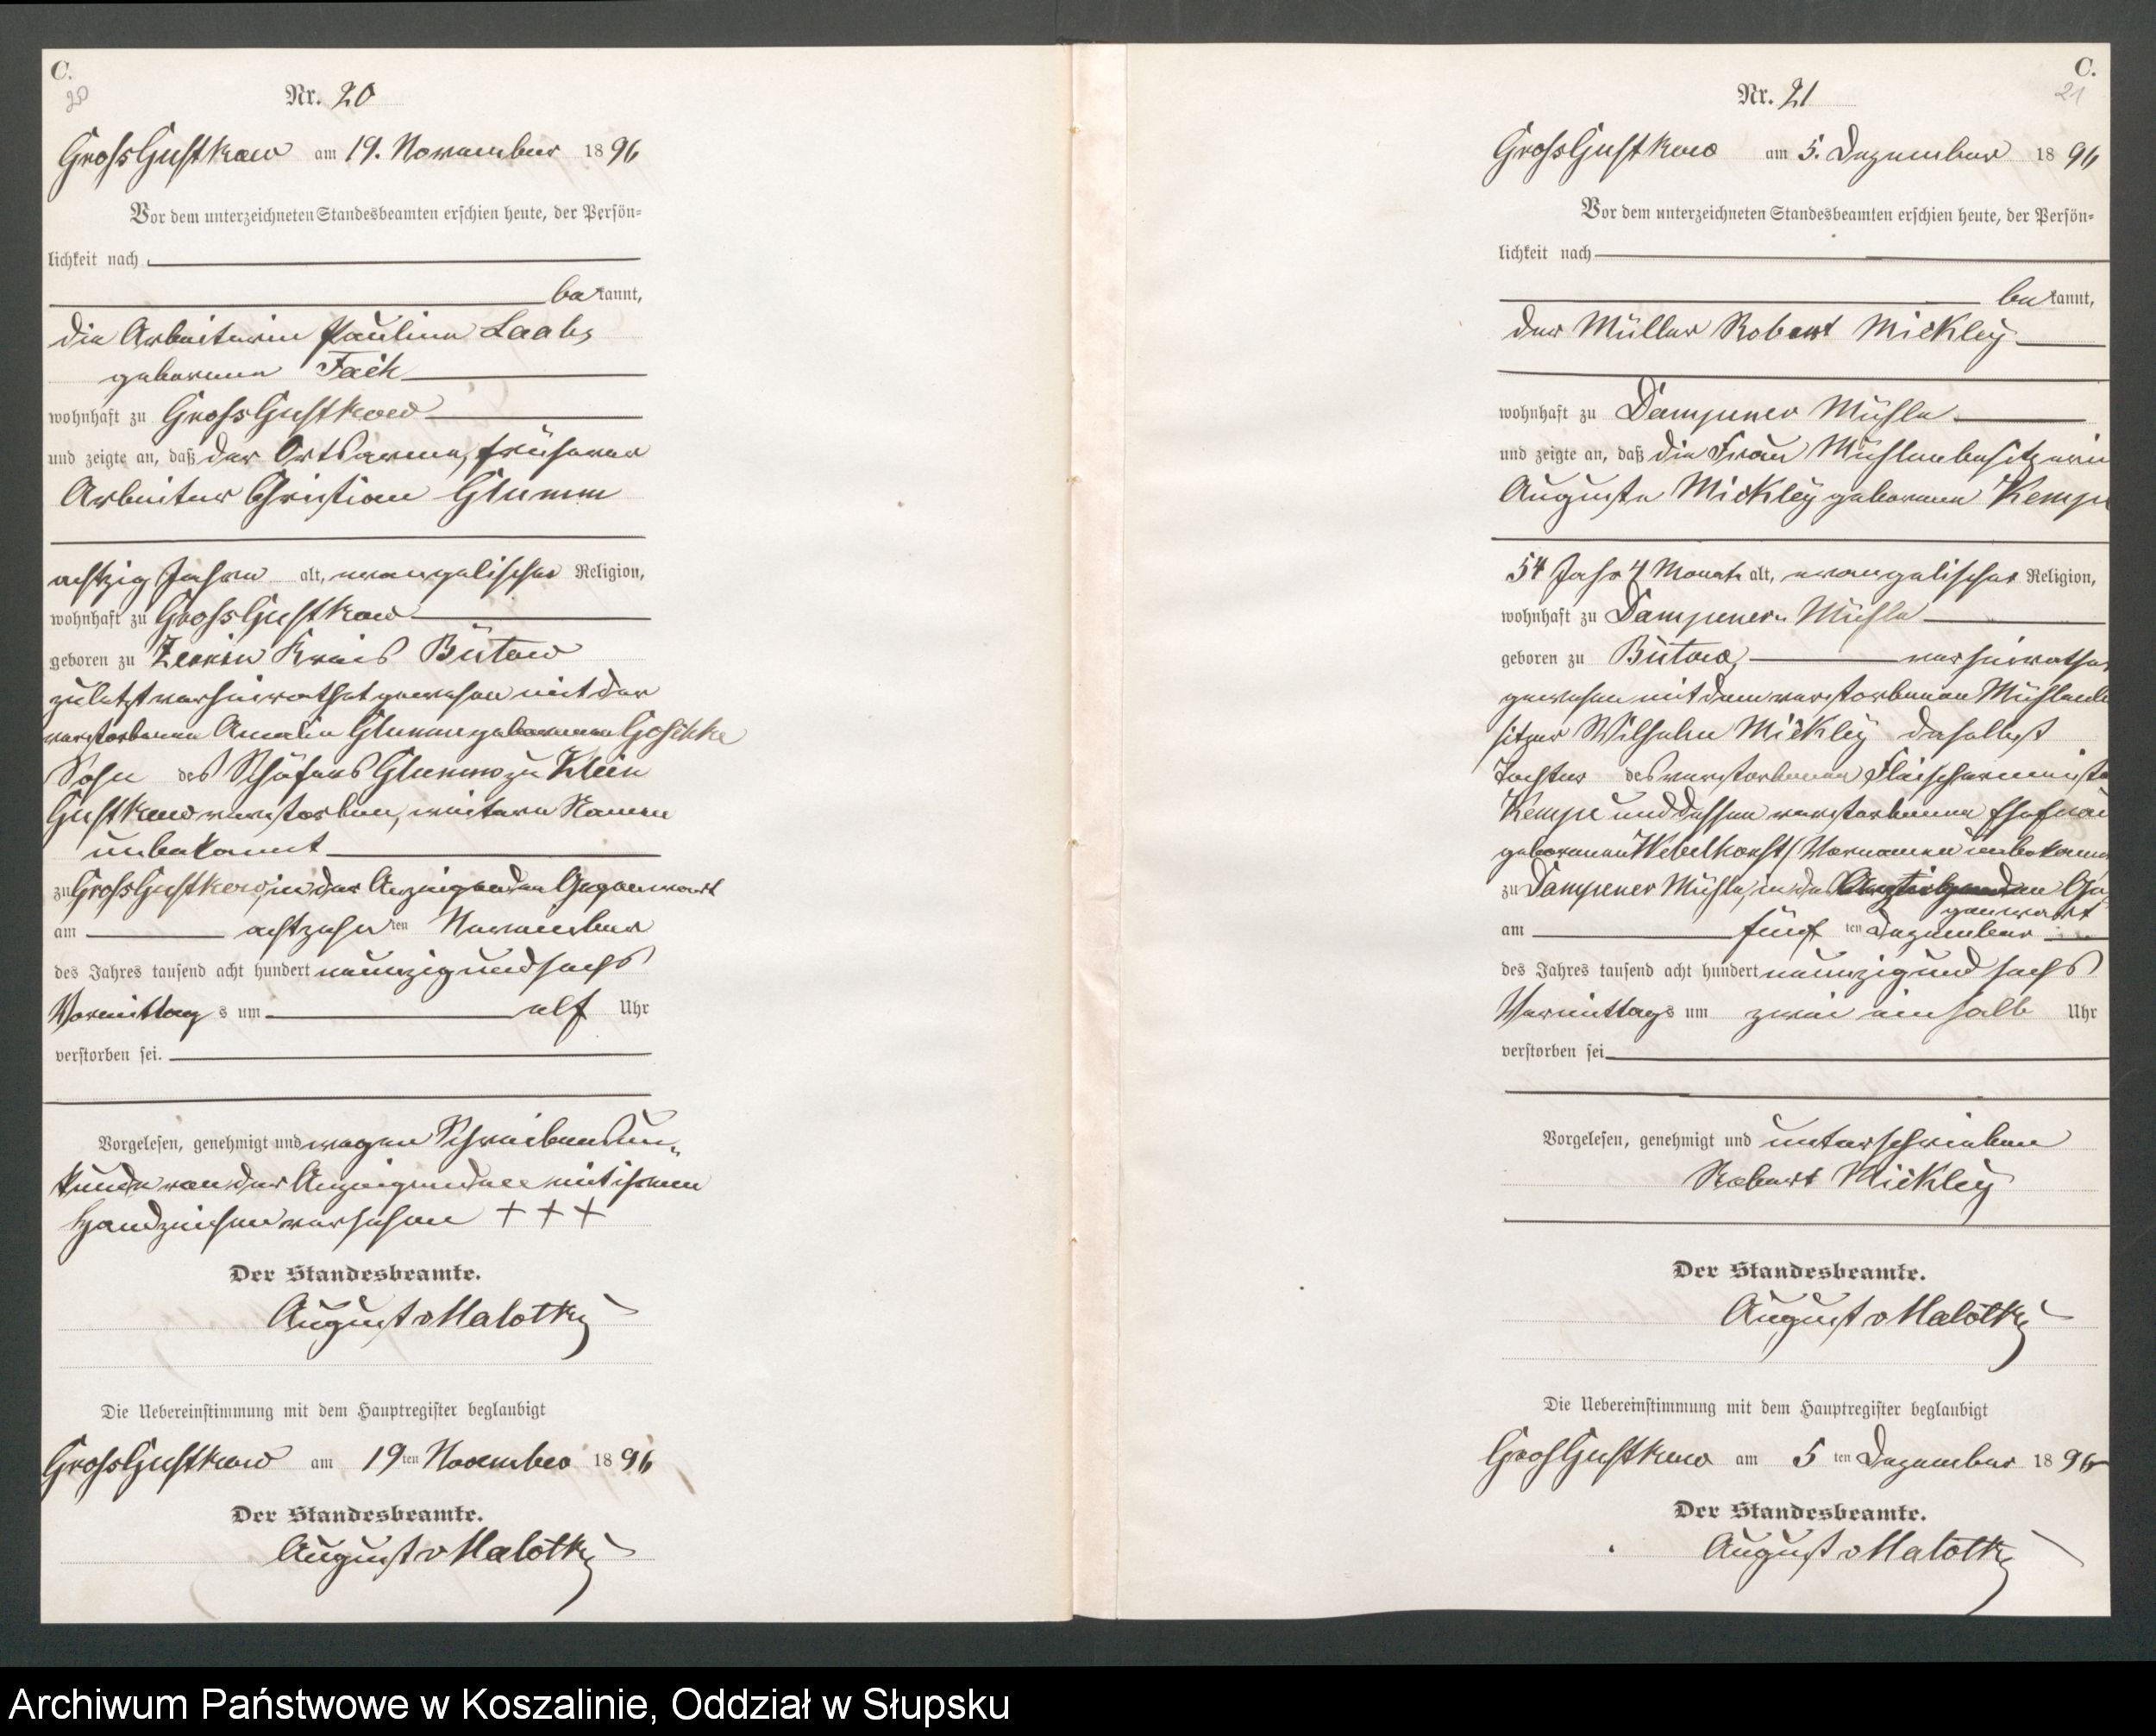 C.
20
Nr. 20
GroßGustkow am 19. November 1896
Vor dem unterzeichneten Standesbeamten erschien heute, der Persön-
lichkeit nach
bekannt,
die Arbeiterin Pauline Laabs
geborene Faeh
wohnhaft zu GroßGustkow
und zeigte an, daß der Ortsarme, früherer
Arbeiter Christian Glumm
achtzig Jahre alt, evangelischer Religion,
wohnhaft zu GroßGustkow
geboren zu Zerrin Kreis Bütow
zuletzt verheirathet gewesen mit der
verstorbenen Amalie Glumm geborenen Goschke
Sohn des Schäfers Glumm zu Klein
Gustkow verstorben, weitere Namen
unbekannt
zu GroßGustkow, in der Anzeigenden Gegenwart
am achtzehnten November
des Jahres tausend acht hundert neunzig und sechs
Vormittags um elf Uhr
verstorben sei.
Vorgelesen, genehmigt und wegen Schreibensun-
kunde von der Anzeigenden mit ihrem
Handzeichen versehen + + +
Der Standesbeamte.
August v Malottky
Die Uebereinstimmung mit dem Hauptregister beglaubigt
GroßGustkow am 19ten November 1896
Der Standesbeamte.
August v Malottky
C.
21
Nr. 21
GroßGustkow am 5. Dezember 1896
Vor dem unterzeichneten Standesbeamten erschien heute, der Persön-
lichkeit nach
bekannt,
der Müller Robert Mickley
wohnhaft zu Dampener Mühle
und zeigte an, daß die Frau Mühlenbesitzerin
Auguste Mickley geborene Kempe
54 Jahr 4 Monate alt, evangelischer Religion,
wohnhaft zu Dampener Mühle
geboren zu Bütow, verheirathet
gewesen mit dem verstorbenen Mühlenbe
sitzer Wilhelm Mickley daselbst
Tochter des verstorbenen Fleischermeisters
Kempe und dessen verstorbener Ehefrau
geborenen (Vornamen unbekannt
zu Dampener Mühle, in des Anzeigenden Ge
genwart
am fünften Dezember
des Jahres tausend acht hundert neunzig und sechs
Vormittags um zwei einhalb Uhr
verstorben sei
Vorgelesen, genehmigt und unterschrieben
Robert Mickley
Der Standesbeamte.
August v Malottky
Die Uebereinstimmung mit dem Hauptregister beglaubigt
GroßGustkow am 5ten Dezember 1896
Der Standesbeamte.
August v Malottky
Archiwum Państwowe w Koszalinie, Oddział w Słupsku